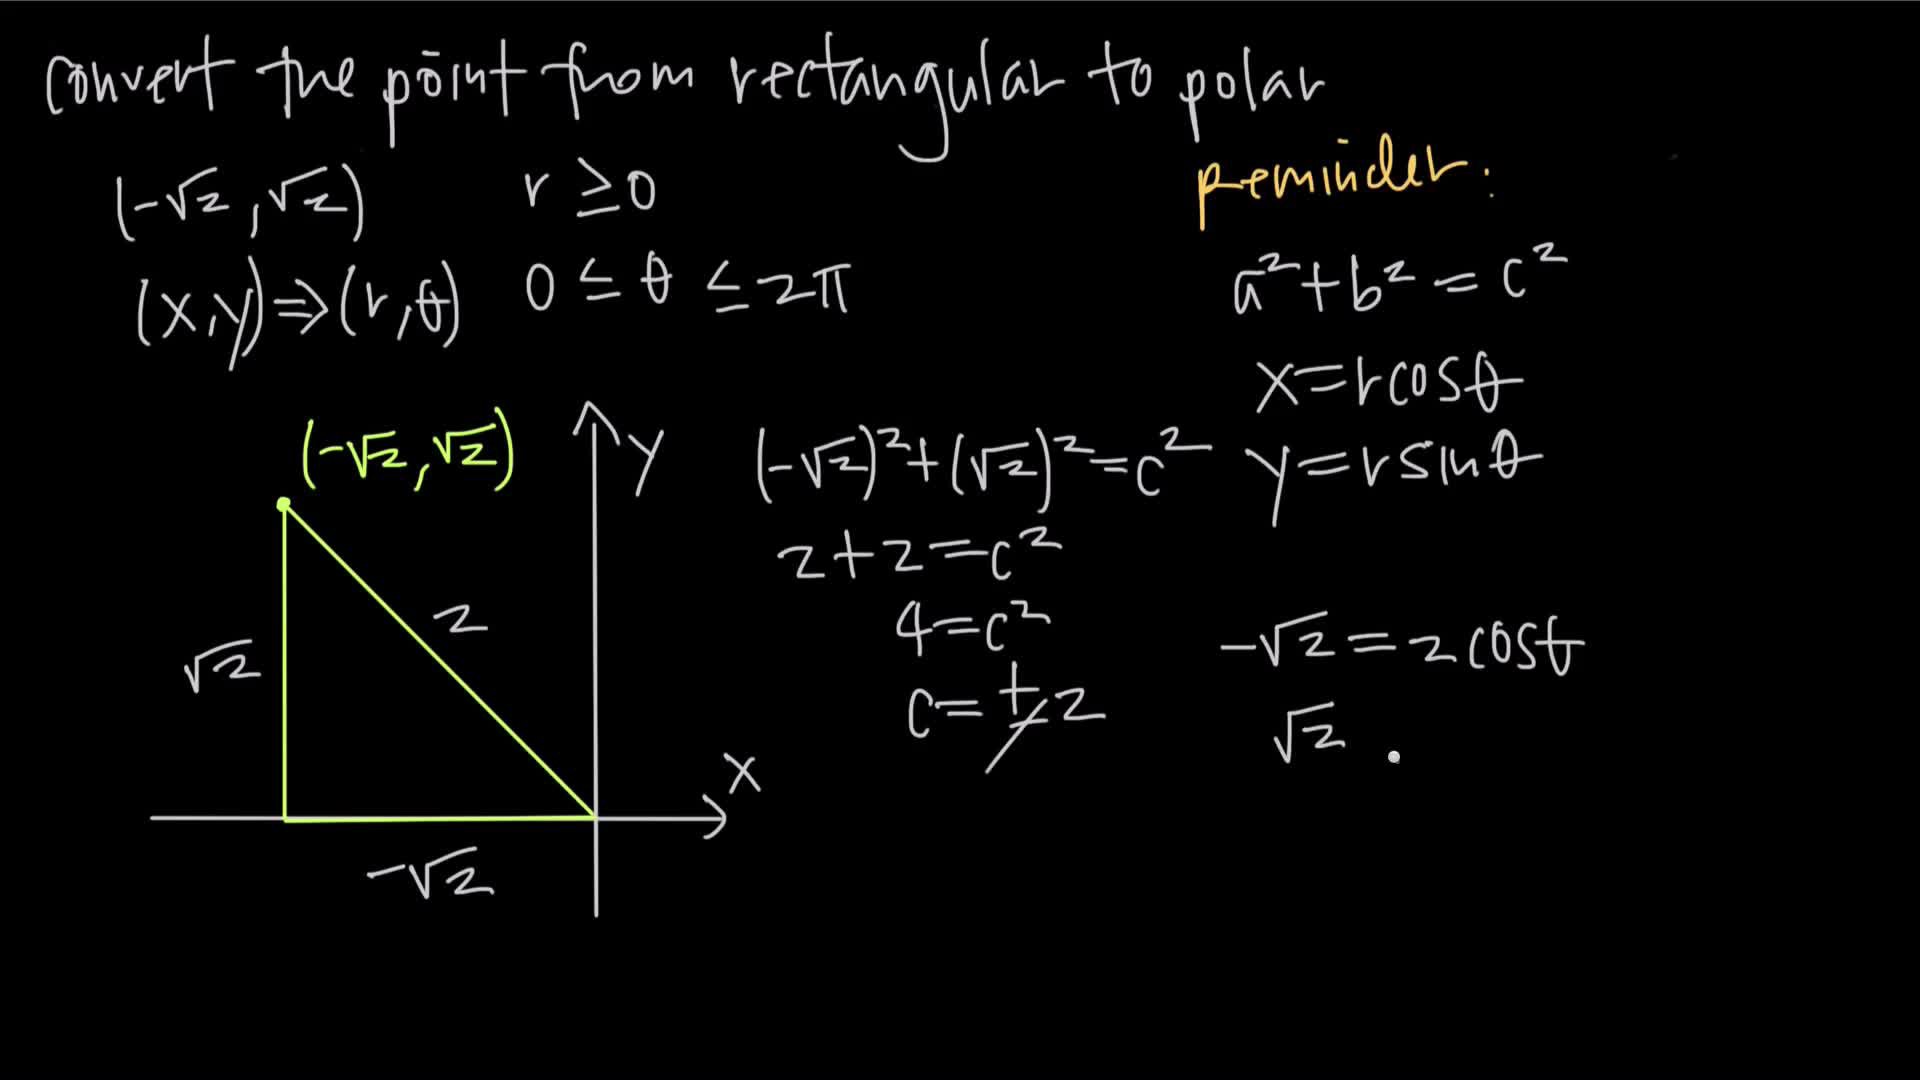 convert the point from rectangular to polar
(-√2, √2) r ≥ 0
(x,y) ⇒ (r,θ) 0 ≤ θ ≤ 2π
reminder:
a² + b² = c²
x = r cos θ
y = r sin θ
(-√2, √2)
y
x
√2
2
-√2
(-√2)² + (√2)² = c²
2 + 2 = c²
4 = c²
c = ± 2
-√2 = 2 cos θ
√2